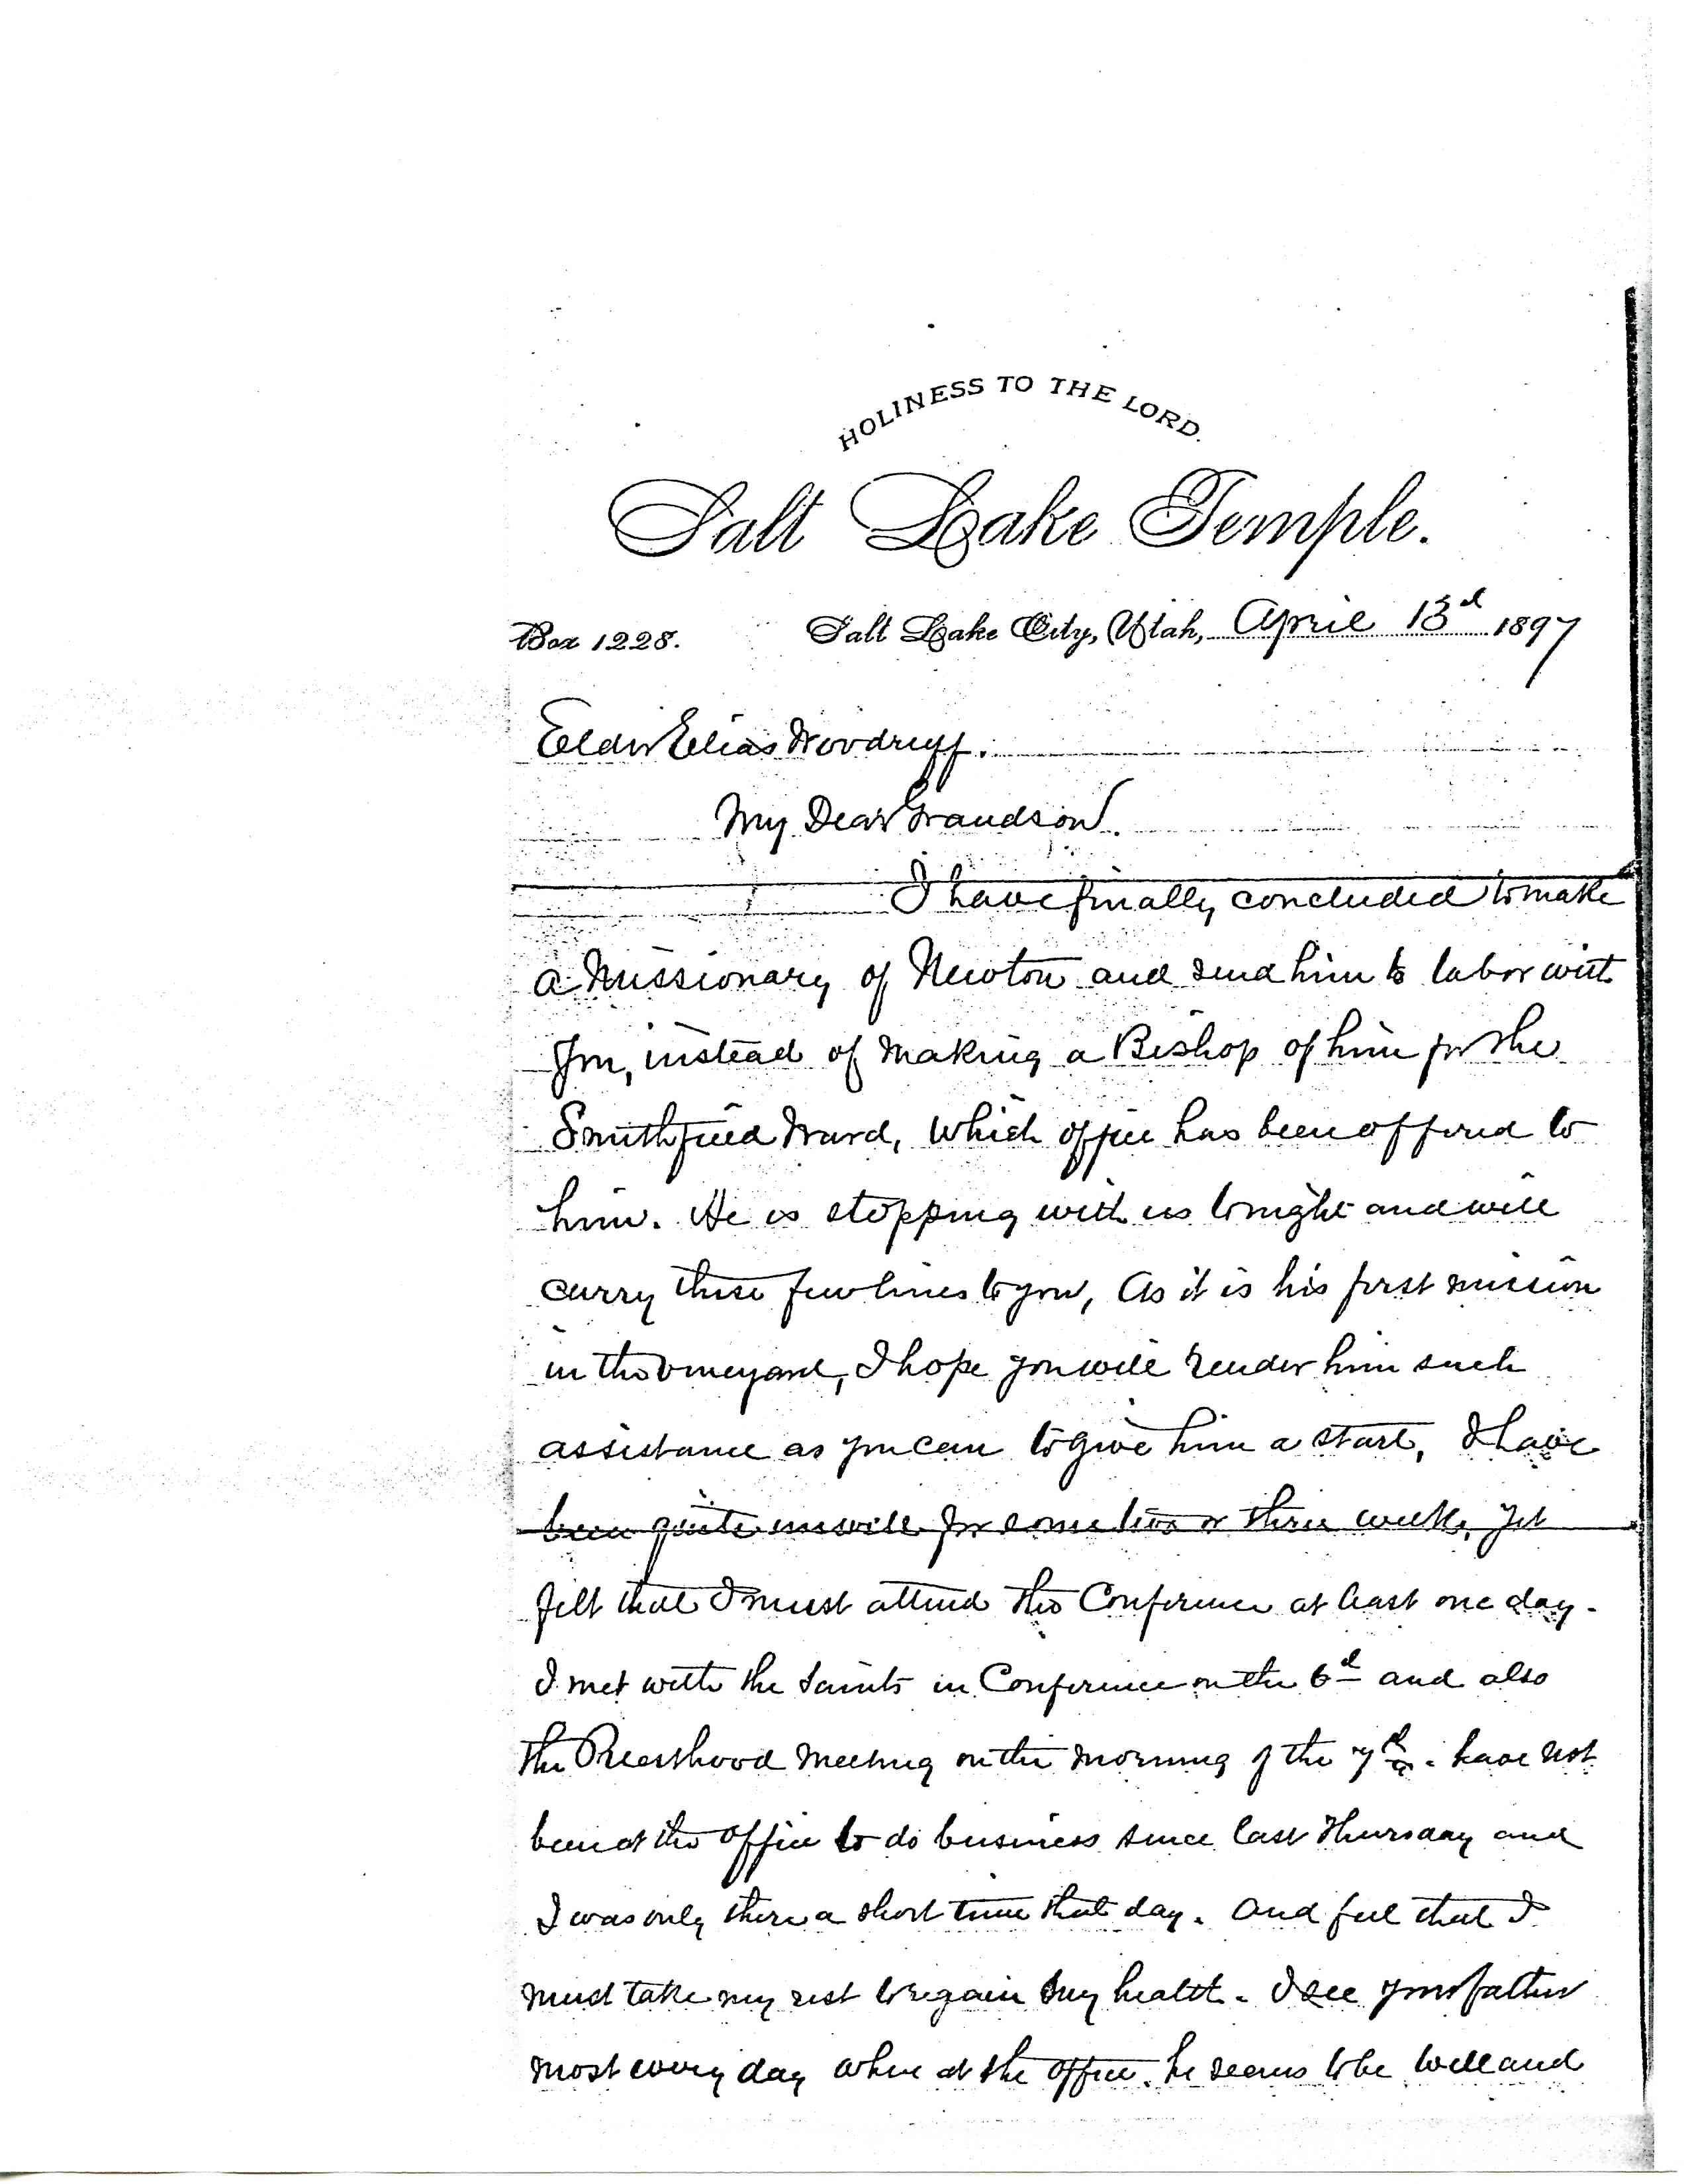 HOLINESS TO THE LORD.
Salt Lake Temple.
Box 1228. Salt Lake City, Utah, April 13d 1897
Elder Elias Woodruff.
My Dear Grandson.
I have finally concluded to make
a Missionary of Newton and send him to labor with
you, instead of making a Bishop of him for the
Smithfield Ward, which office has been offered to
him. He is stopping with us tonight and will
carry these few lines to you, As it is his first mission
in the vineyard, I hope you will render him such
assistance as you can to give him a start, I have
been quite unwell for some two or three weeks, yet
felt that I must attend the Conference at least one day.
I met with the Saints in Conference on the 6d and also
the Priesthood Meeting on the morning of the 7th. have not
been at the office to do business since last Thursday and
I was only there a short time that day. And feel that I
must take my rest to regain my health. I see your father
most every day when at the office. he seems to be well and